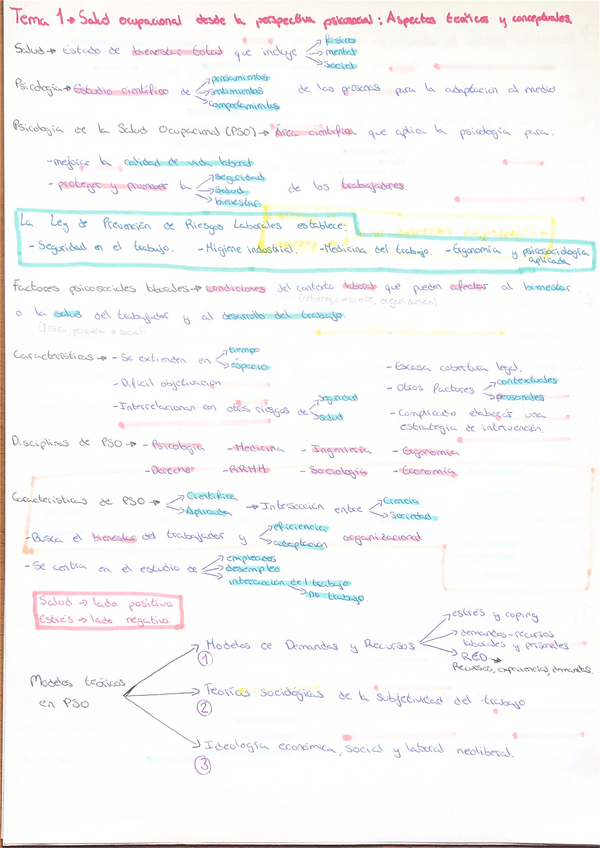 Tema 1 → Salud ocupacional desde la perspectiva psicosocial: Aspectos teóricos y conceptuales.
Salud → Estado de bienestar total que incluye → físico
→ mental
→ social
Psicología → Estudio científico de → pensamientos
→ sentimientos
→ comportamientos
de las personas para la adaptación al medio.
Psicología de la Salud Ocupacional (PSO) → Área científica que aplica la psicología para:
- mejorar la calidad de vida laboral
- proteger y promover la → seguridad
→ salud
→ bienestar
de los trabajadores.
La Ley de Prevención de Riesgos Laborales establece:
- Seguridad en el trabajo. - Higiene industrial. - Medicina del trabajo. - Ergonomía y psicosociología
aplicada
Factores psicosociales laborales → condiciones del contexto laboral que pueden afectar al bienestar
o la salud del trabajador y al desarrollo del trabajo.
(física, psíquica o social)
Características → - Se extienden en → tiempo
→ espacio
- Difícil objetivación
- Interrelacionan con otros riesgos de → seguridad
→ salud
- Escasa cobertura legal.
- Otros factores → contextuales
→ personales
- Complicado elaborar una
estrategia de intervención.
Disciplinas de PSO → - Psicología - Medicina - Ingeniería - Ergonomía
- Derecho - RRHH - Sociología - Economía
Características de PSO → Científica
→ Aplicada → Intersección entre → Ciencia
→ Sociedad
- Busca el bienestar del trabajador y → eficiencia
→ adaptación organizacional
- Se centra en el estudio de → empleados
→ desempleo
→ interacción del trabajo
→ no trabajo.
Salud → lado positivo
Estrés → lado negativo
Modelos teóricos
en PSO
Modelos de Demandas y Recursos
①
→ estrés y coping
→ demandas-recursos
laborales y personales
→ RED →
Recursos, experiencias, demandas.
Teorías sociológicas de la subjetividad del trabajo
②
Ideología económica, social y laboral neoliberal.
③